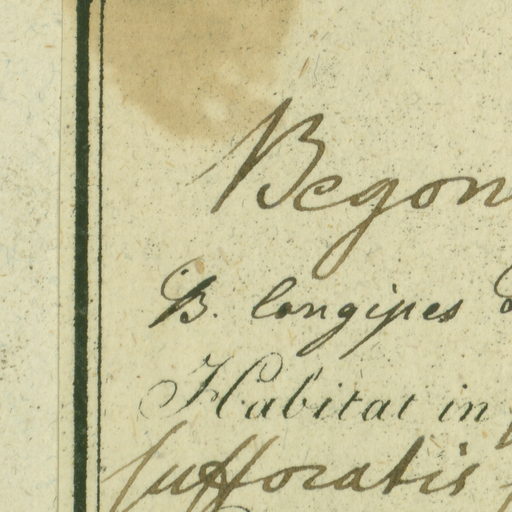 Begon
B. longipes
Habitat in
suffocatis